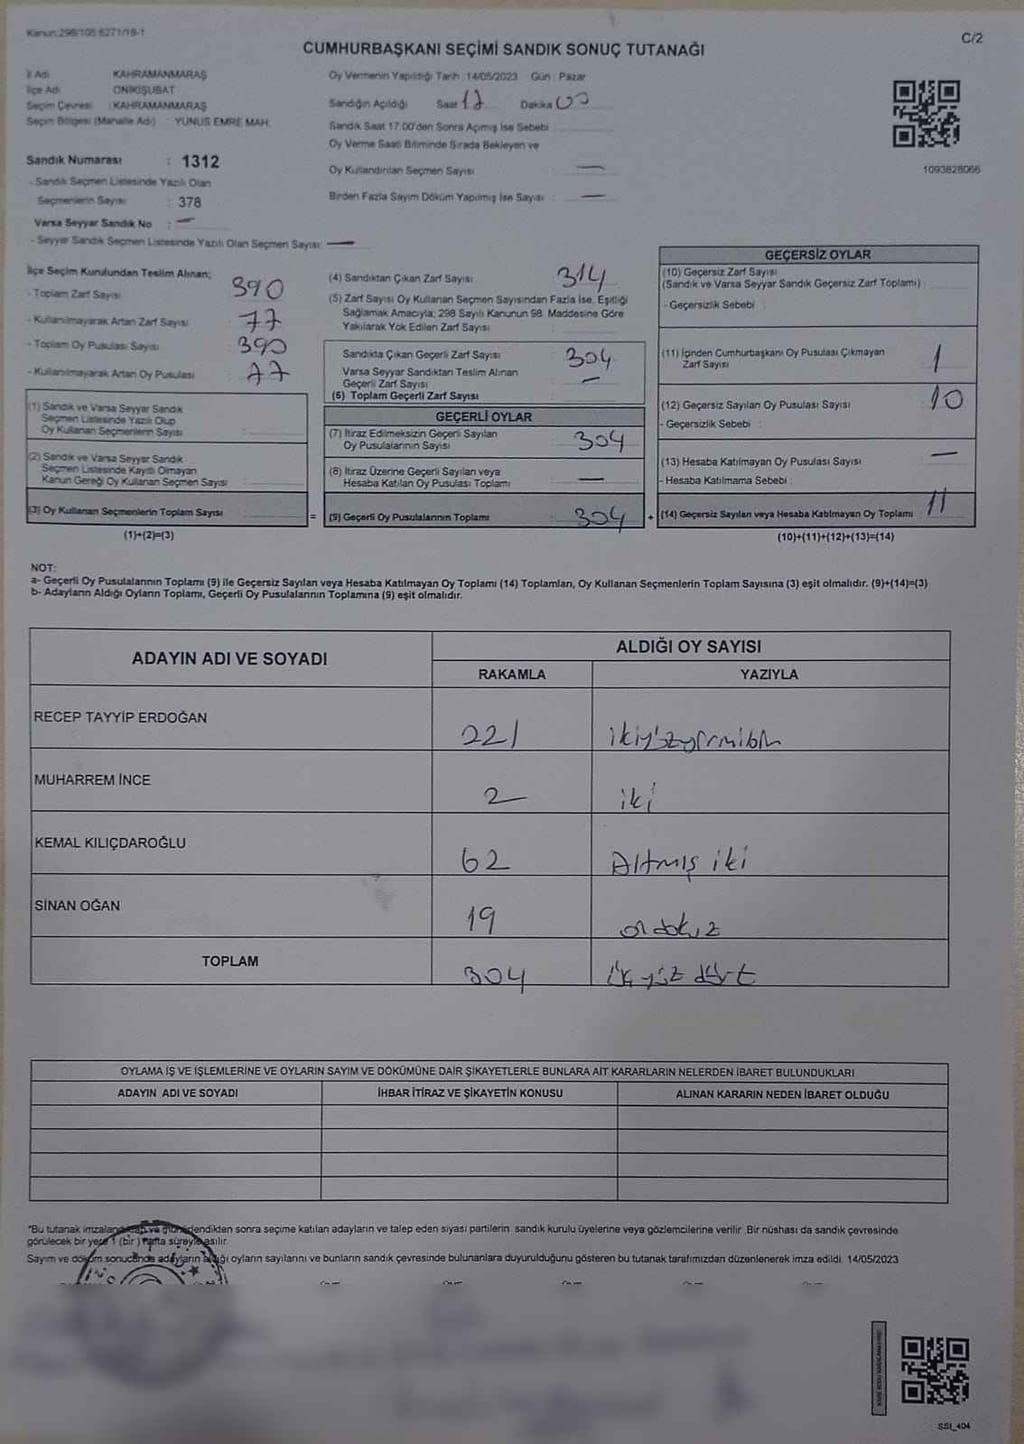 Kanun:298/105 6271/18-1
C/2
CUMHURBAŞKANI SEÇİMİ SANDIK SONUÇ TUTANAĞI
İl Adı KAHRAMANMARAŞ
İlçe Adı ONİKİŞUBAT
Seçim Çevresi : KAHRAMANMARAŞ
Seçim Bölgesi (Mahalle Adı) : YUNUS EMRE MAH.
Sandık Numarası : 1312
- Sandık Seçmen Listesinde Yazılı Olan
Seçmenlerin Sayısı : 378
Varsa Seyyar Sandık No : —
- Seyyar Sandık Seçmen Listesinde Yazılı Olan Seçmen Sayısı: —
Oy Vermenin Yapıldığı Tarih : 14/05/2023 Gün : Pazar
Sandığın Açıldığı Saat 17 Dakika 00
Sandık Saat 17.00'den Sonra Açmış İse Sebebi
Oy Verme Saati Bitiminde Sırada Bekleyen ve
Oy Kullandırılan Seçmen Sayısı : —
Birden Fazla Sayım Döküm Yapılmış İse Sayısı : —
1093828066
İlçe Seçim Kurulundan Teslim Alınan;
- Toplam Zarf Sayısı 390
- Kullanılmayarak Artan Zarf Sayısı 77
- Toplam Oy Pusulası Sayısı 390
- Kullanılmayarak Artan Oy Pusulası 77
(1) Sandık ve Varsa Seyyar Sandık
Seçmen Listesinde Yazılı Olup
Oy Kullanan Seçmenlerin Sayısı
(2) Sandık ve Varsa Seyyar Sandık
Seçmen Listesinde Kayıtlı Olmayan
Kanun Gereği Oy Kullanan Seçmen Sayısı
(3) Oy Kullanan Seçmenlerin Toplam Sayısı
(1)+(2)=(3)
(4) Sandıktan Çıkan Zarf Sayısı 314
(5) Zarf Sayısı Oy Kullanan Seçmen Sayısından Fazla İse, Eşitliği
Sağlamak Amacıyla; 298 Sayılı Kanunun 98. Maddesine Göre
Yakılarak Yok Edilen Zarf Sayısı
Sandıkta Çıkan Geçerli Zarf Sayısı 304
Varsa Seyyar Sandıktan Teslim Alınan
Geçerli Zarf Sayısı —
(6) Toplam Geçerli Zarf Sayısı
GEÇERLİ OYLAR
(7) İtiraz Edilmeksizin Geçerli Sayılan
Oy Pusulalarının Sayısı 304
(8) İtiraz Üzerine Geçerli Sayılan veya
Hesaba Katılan Oy Pusulası Toplamı —
= (9) Geçerli Oy Pusulalarının Toplamı 304 +
GEÇERSİZ OYLAR
(10) Geçersiz Zarf Sayısı
(Sandık ve Varsa Seyyar Sandık Geçersiz Zarf Toplamı)
- Geçersizlik Sebebi :
(11) İçinden Cumhurbaşkanı Oy Pusulası Çıkmayan
Zarf Sayısı 1
(12) Geçersiz Sayılan Oy Pusulası Sayısı 10
- Geçersizlik Sebebi :
(13) Hesaba Katılmayan Oy Pusulası Sayısı —
- Hesaba Katılmama Sebebi :
(14) Geçersiz Sayılan veya Hesaba Katılmayan Oy Toplamı 11
(10)+(11)+(12)+(13)=(14)
NOT:
a- Geçerli Oy Pusulalarının Toplamı (9) ile Geçersiz Sayılan veya Hesaba Katılmayan Oy Toplamı (14) Toplamları, Oy Kullanan Seçmenlerin Toplam Sayısına (3) eşit olmalıdır. (9)+(14)=(3)
b- Adayların Aldığı Oyların Toplamı, Geçerli Oy Pusulalarının Toplamına (9) eşit olmalıdır.
ADAYIN ADI VE SOYADI
ALDIĞI OY SAYISI
RAKAMLA YAZIYLA
RECEP TAYYİP ERDOĞAN 221 ikiyüzyirmibir
MUHARREM İNCE 2 iki
KEMAL KILIÇDAROĞLU 62 Altmış iki
SİNAN OĞAN 19 ondokuz
TOPLAM 304 üçyüz dört
OYLAMA İŞ VE İŞLEMLERİNE VE OYLARIN SAYIM VE DÖKÜMÜNE DAİR ŞİKAYETLERLE BUNLARA AİT KARARLARIN NELERDEN İBARET BULUNDUKLARI
ADAYIN ADI VE SOYADI İHBAR İTİRAZ VE ŞİKAYETİN KONUSU ALINAN KARARIN NEDEN İBARET OLDUĞU
*Bu tutanak imzalanıp ve mühürlendikten sonra seçime katılan adayların ve talep eden siyasi partilerin sandık kurulu üyelerine veya gözlemcilerine verilir. Bir nüshası da sandık çevresinde
görülecek bir yere 1 (bir) hafta süreyle asılır.
Sayım ve döküm sonucunda adayların aldığı oyların sayılarını ve bunların sandık çevresinde bulunanlara duyurulduğunu gösteren bu tutanak tarafımızdan düzenlenerek imza edildi. 14/05/2023
SSI_404